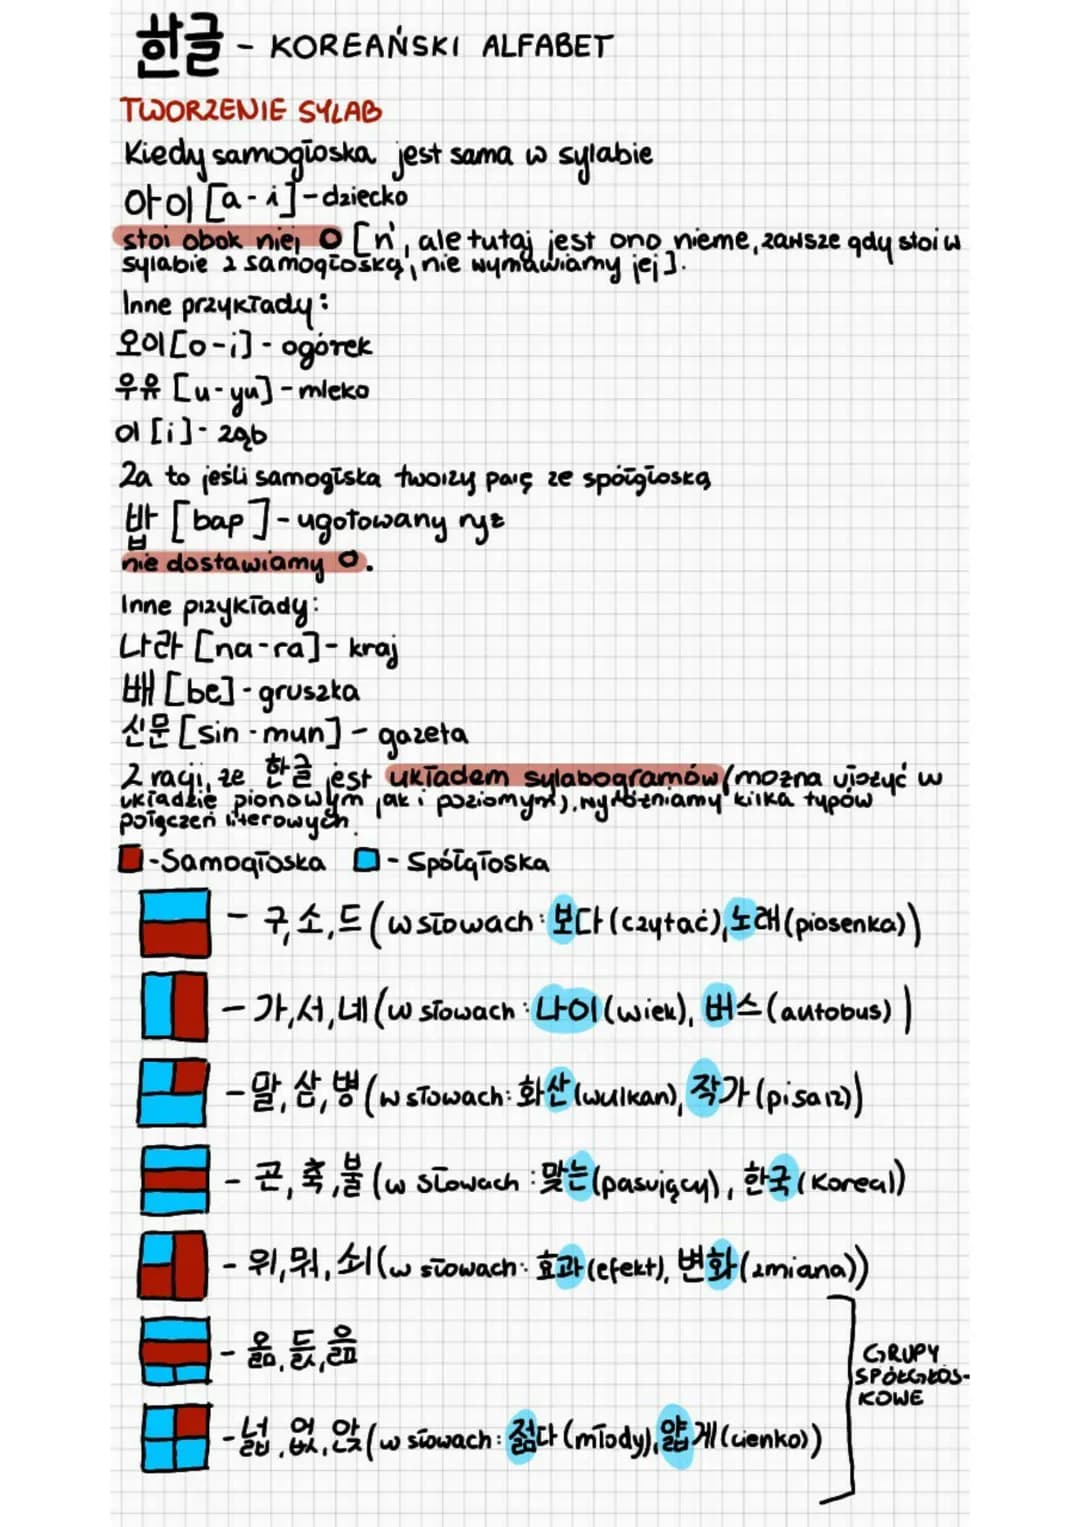 한글 - KOREAŃSKI ALFABET
TWORZENIE SYLAB
Kiedy samogłoska jest sama w sylabie
아이 [a-i] - dziecko
stoi obok niej ㅇ [ń, ale tutaj jest ono nieme, zawsze gdy stoi w
sylabie z samogłoską, nie wymawiamy jej].
Inne przykłady:
오이 [o-i] - ogórek
우유 [u-yu] - mleko
이 [i] - ząb
Za to jeśli samogłska tworzy parę ze spółgłoską
밥 [bap] - ugotowany ryż
nie dostawiamy ㅇ.
Inne przykłady:
나라 [na-ra] - kraj
배 [be] - gruszka
신문 [sin-mun] - gazeta
Z racji, że 한글 jest układem sylabogramów (można ułożyć w
układzie pionowym jak i poziomym), wyróżniamy kilka typów
połączeń literowych.
- Samogłoska - Spółgłoska
- 구, 소, 드 (w słowach: 보다 (czytać), 노래 (piosenka))
- 가, 서, 네 (w słowach: 나이 (wiek), 버스 (autobus))
- 말, 삼, 병 (w słowach: 화산 (wulkan), 작가 (pisarz))
- 곤, 축, 불 (w słowach: 맞는 (pasujący), 한국 (Korea))
- 위, 뭐, 쇠 (w słowach: 효과 (efekt), 변화 (zmiana))
- 옮, 듨, 읊
- 넓, 없, 앉 (w słowach: 젊다 (młody), 얇게 (cienko))
GRUPY
SPÓŁGŁOS-
KOWE